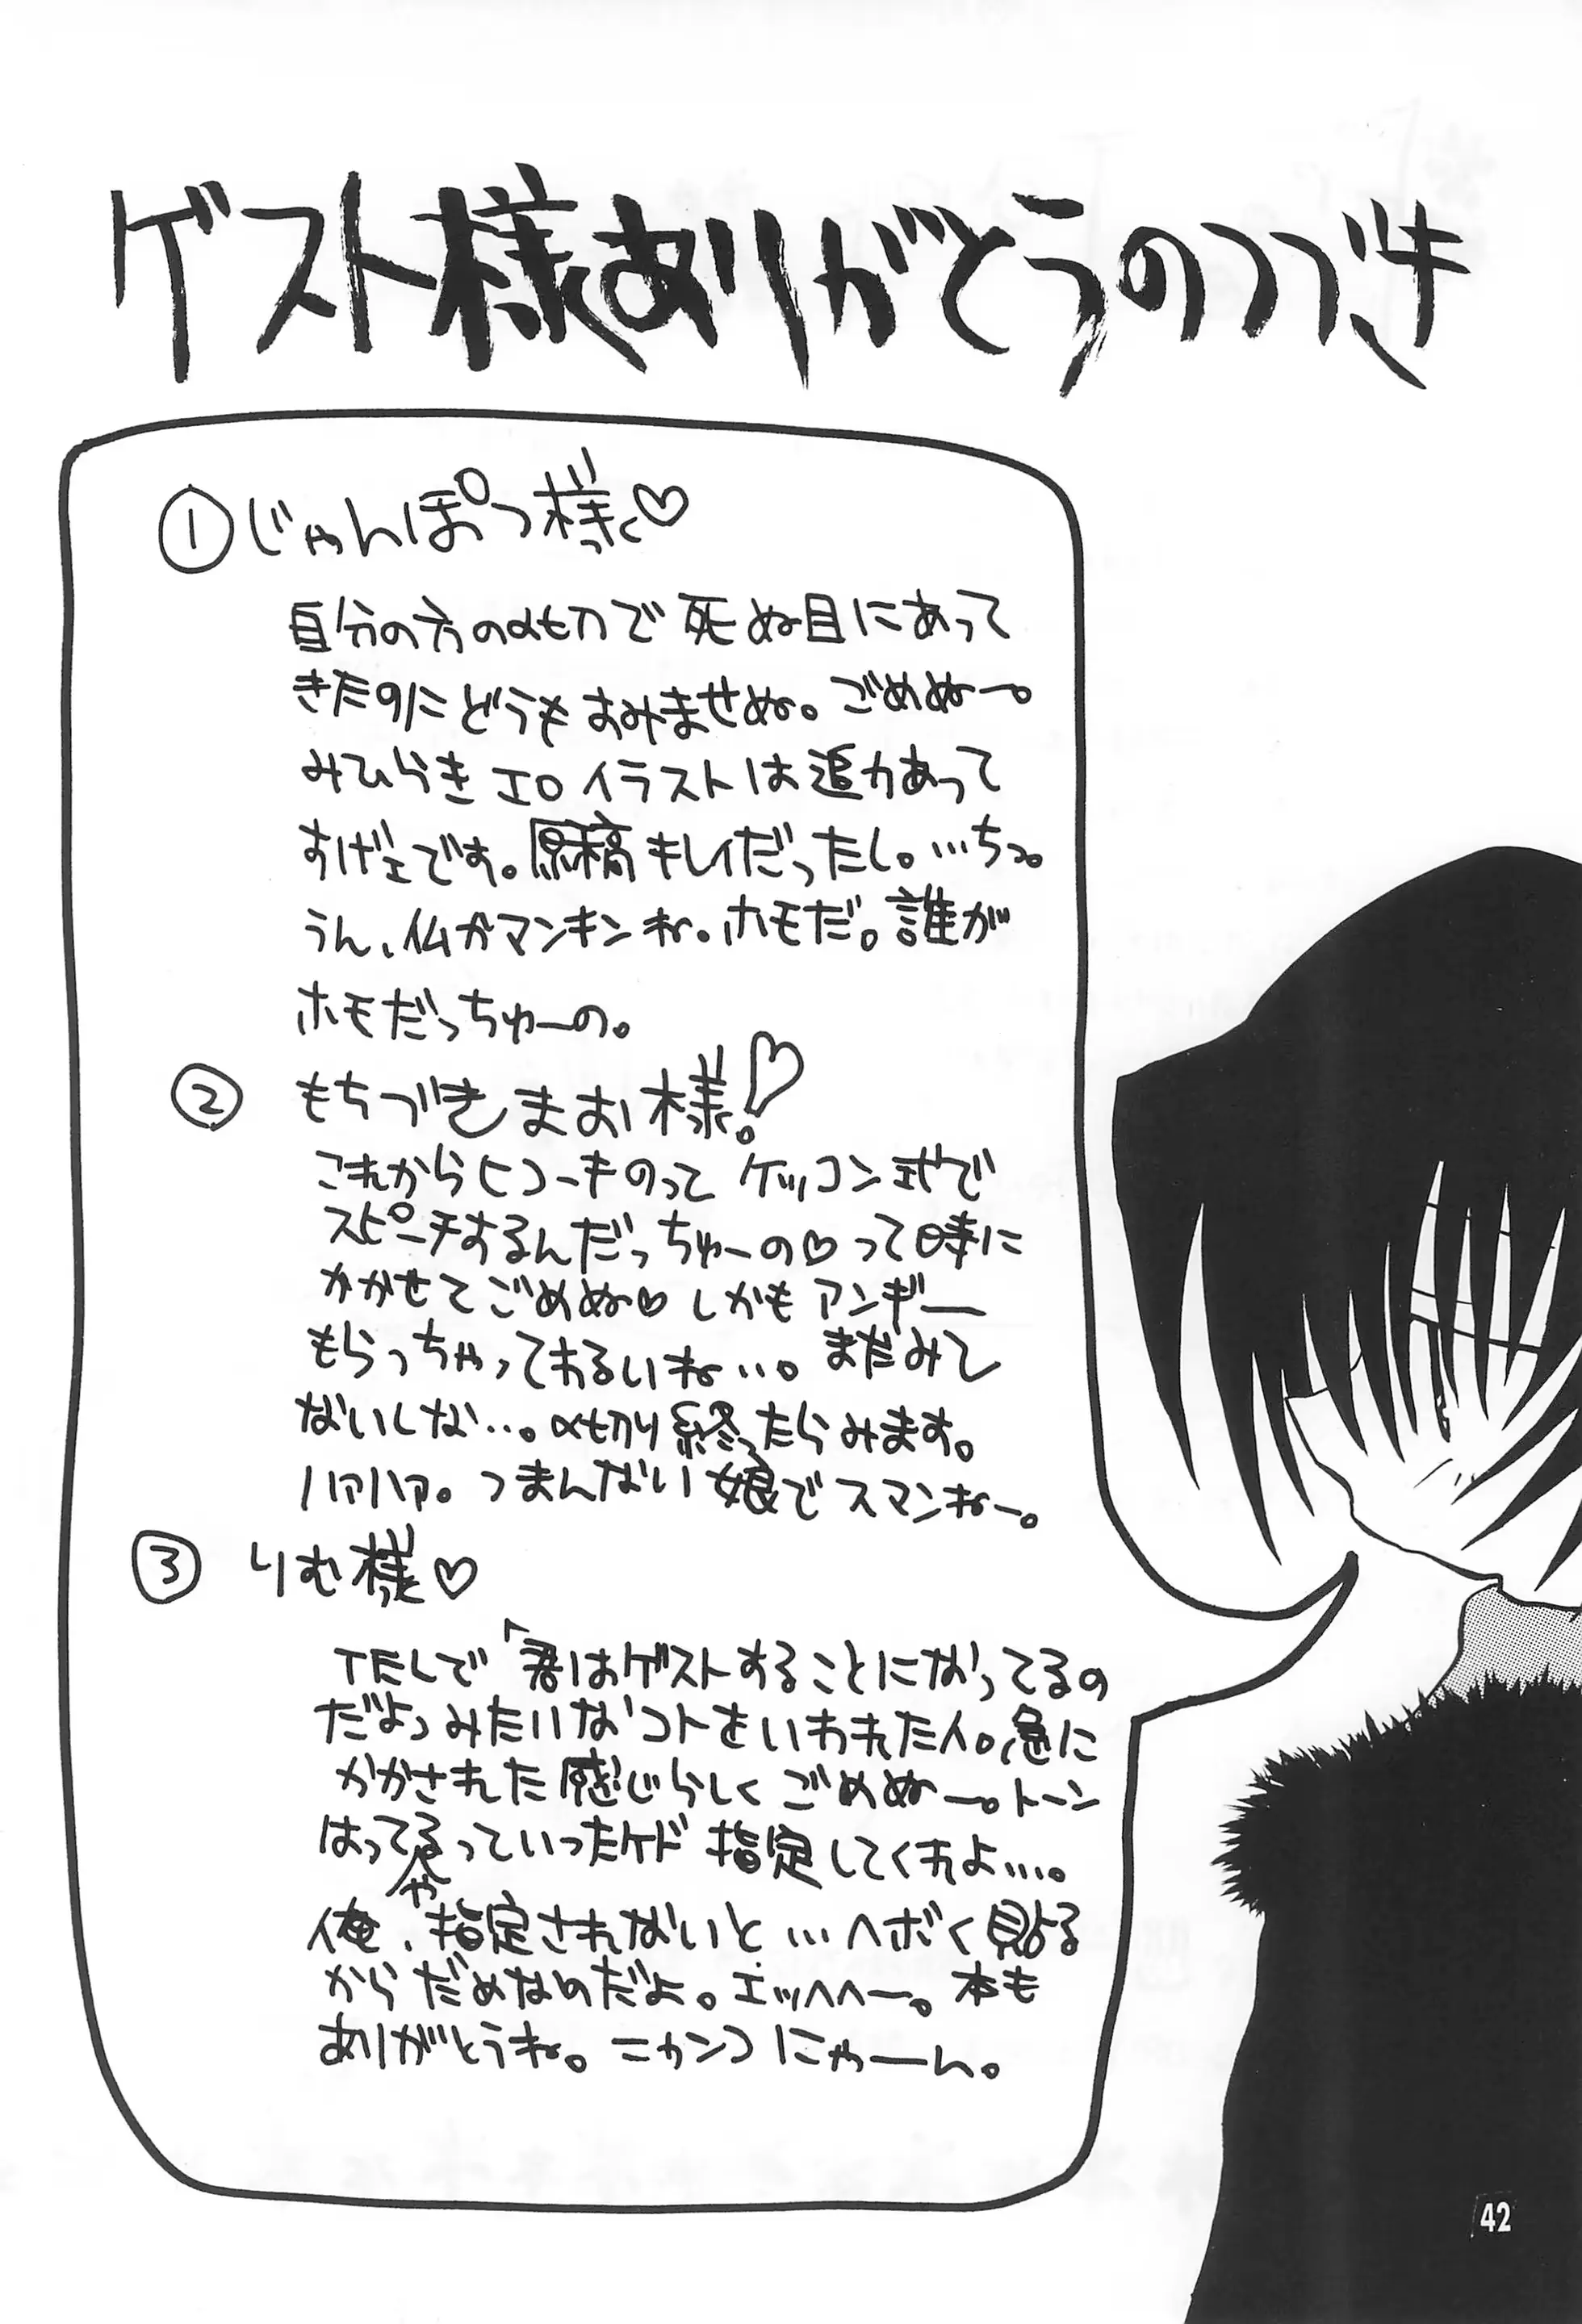 ゲスト様ありがとうのつづき
① じゃんぽつ様♡
自分の方の〆切で死ぬ目にあって
きたのにどうもすみませぬ。ごめぬー。
みひらきエロイラストは追力あって
すげェです。原稿キレイだったし。…ちっ。
うん、仏がマンキンね。ホモだ。誰が
ホモだっちゅーの。
② もちづきまお様!♡
これからヒコーキのってケッコン式で
スピーチするんだっちゅーの♡って時に
かかせてごめぬ♡しかもアンギー
もらっちゃってわるいね…。まだみて
ないしな…。〆切り終ったらみます。
ハァハァ。つまんない娘でスマンねー。
③ りむ様♡
TELで「君はゲストすることになってるの
だよっみたいなコトをいわれた人。急に
かかされた感じらしくごめぬー。トーン
はってるっていったケド指定してくれよ…。
俺、今や指定されないと…ヘボく貼る
からだめなのだよ。エッヘヘー。本も
ありがとうね。ニャンコにゃーん。
42